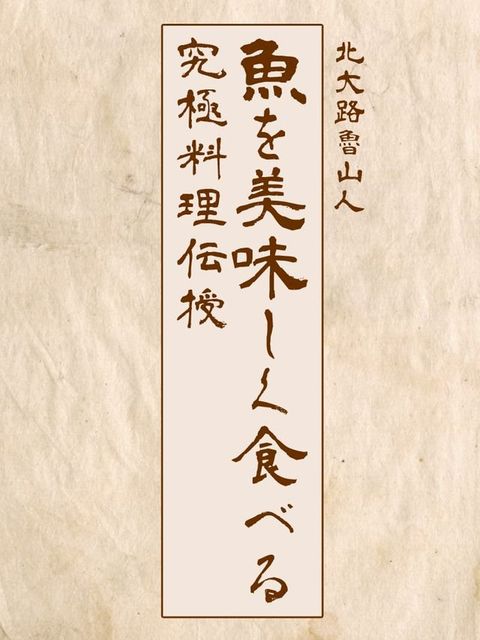 北大路魯山人
魚を美味しく食べる
究極料理伝授